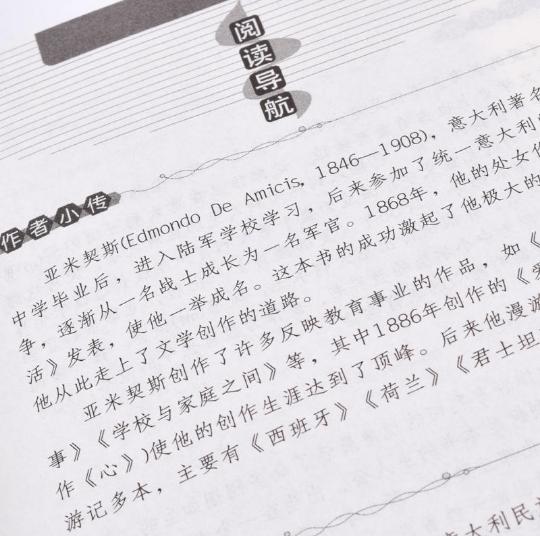 阅读导航
作者小传
亚米契斯(Edmondo De Amicis, 1846—1908)，意大利著名
中学毕业后，进入陆军学校学习，后来参加了统一意大利的
争，逐渐从一名战士成长为一名军官。1868年，他的处女作
活》发表，使他一举成名。这本书的成功激起了他极大的
他从此走上了文学创作的道路。
亚米契斯创作了许多反映教育事业的作品，如《
事》《学校与家庭之间》等，其中1886年创作的《爱
作《心》)使他的创作生涯达到了顶峰。后来他漫游
游记多本，主要有《西班牙》《荷兰》《君士坦
意大利民